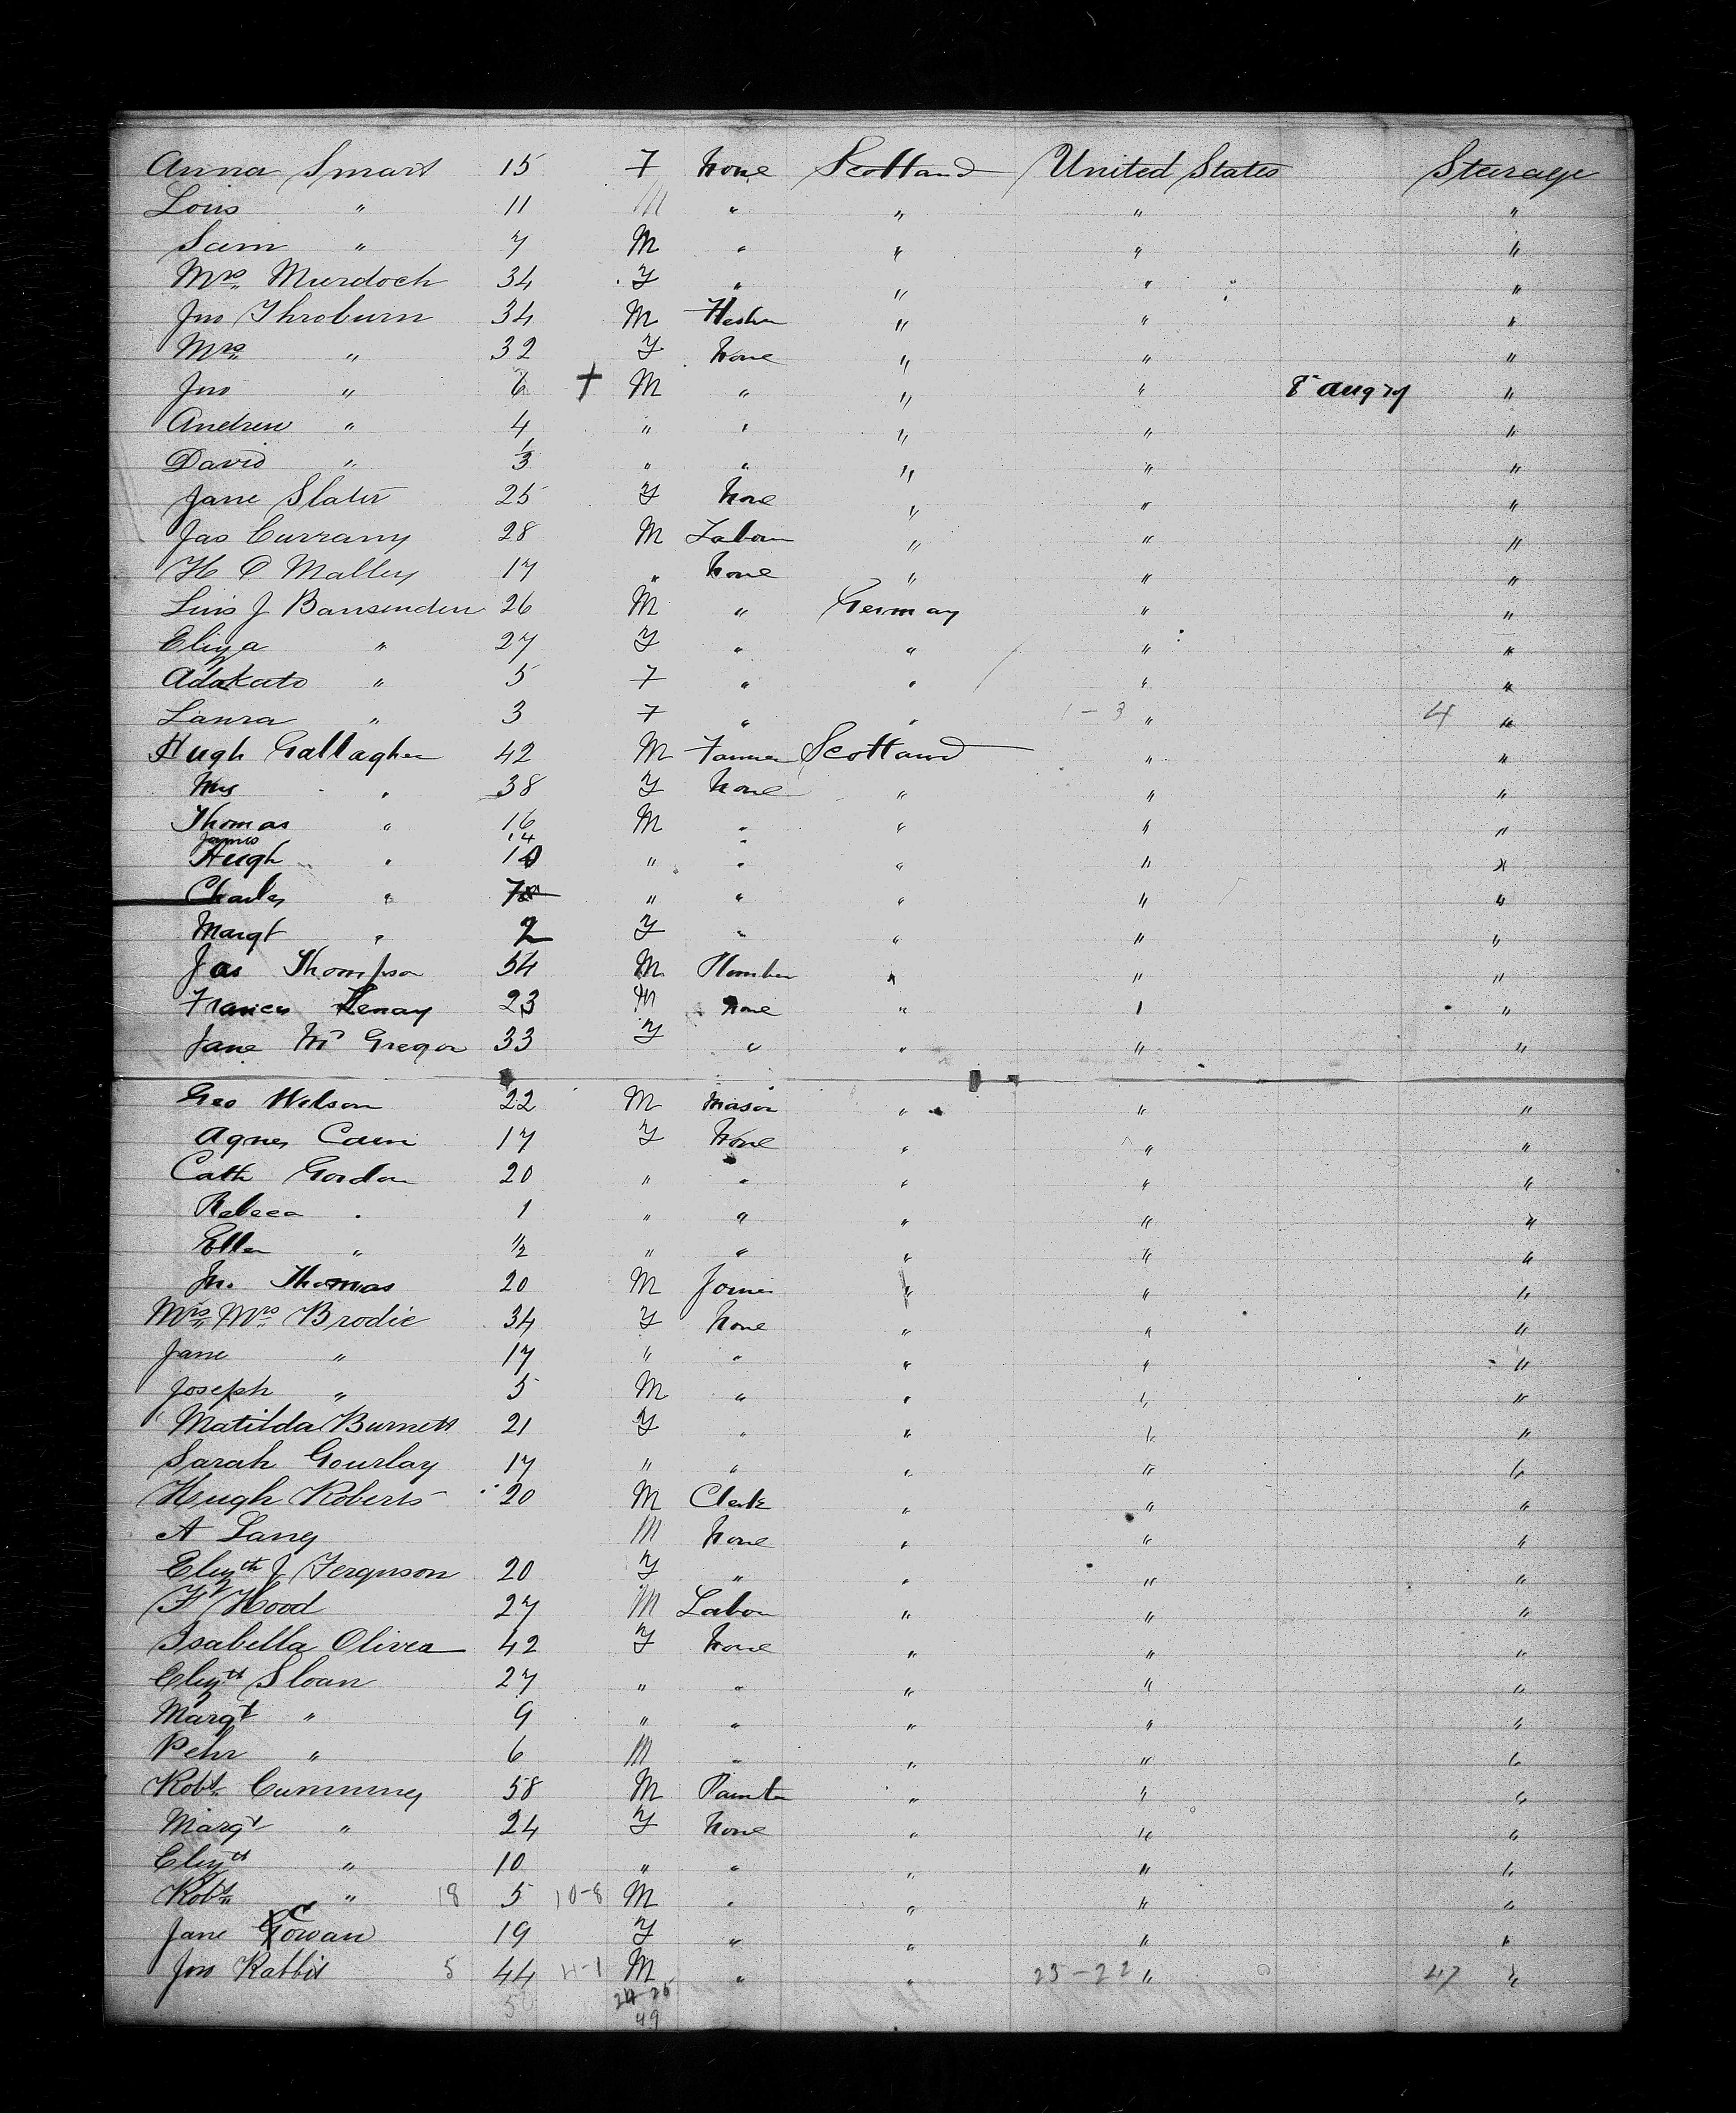 Anna Smart 15 F None Scotland United States Steerage
Louis " 11 M " " " "
Sam " 7 M " " " "
Mrs. Murdoch 34 F " " " "
Jno Throburn 34 M " " "
Mrs " 32 F None " " "
Jno " 6 + M " " " 8 Aug 79 "
Andrew " 4 " " " " "
David " 1/3 " " " " "
Jane Slater 25 F None " " "
Jas Currany 28 M Labour " " "
H O Malley 17 " None " " "
Louis J Bansenden 26 M " Germany " "
Eliza " 27 F " " " "
Ada Kate " 5 F " " " "
Laura " 3 F " " 1-3 " 4 "
Hugh Gallagher 42 M Farmer Scotland " "
Mrs " 38 F None " " "
Thomas " 16 M " " " "
James 14 "
Hugh " 10 " " " " "
Charles " " " " " "
Margt " 2 F " " " "
Jas Thompson 54 M Plumber " " "
Frances 23 M None " " "
Jane Mc Gregor 33 F " " " "
Geo Wilson 22 M Mason " " "
Agnes Cain 17 F None " " "
Cath Gordon 20 " " " " "
Rebeca " 1 " " " " "
Ellen " 1/2 " " " " "
Jno. Thomas 20 M Joiner " " "
Mrs. Mrs. Brodie 34 F None " " "
Jane " 17 " " " " "
Joseph " 5 M " " " "
Matilda Burnett 21 F " " " "
Sarah Gourlay 17 " " " " "
Hugh Roberts 20 M Clerk " " "
A Lang M None " " "
Elizth J Ferguson 20 F " " " "
F Hood 27 M Labour " " "
Isabella Oliver 42 F None " " "
Elizth Sloan 27 " " " " "
Margt " 9 " " " " "
Peter " 6 M " " " "
Robt. Cumming 58 M Painter " " "
Margt " 24 F None " " "
Elizth " 10 " " " " "
Robt. " 18 5 10-8 M " " " "
Jane Cowan 19 F " " " "
Jno Rabbit 5 44 4-1 M " " 23-22 " 47 "
50 24-25
49